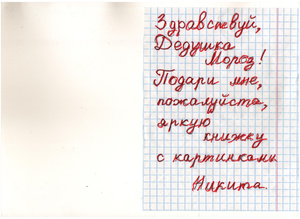 Здравствуй,
Дедушка
Мороз!
Подари мне,
пожалуйста,
яркую
книжку
с картинками
Никита.